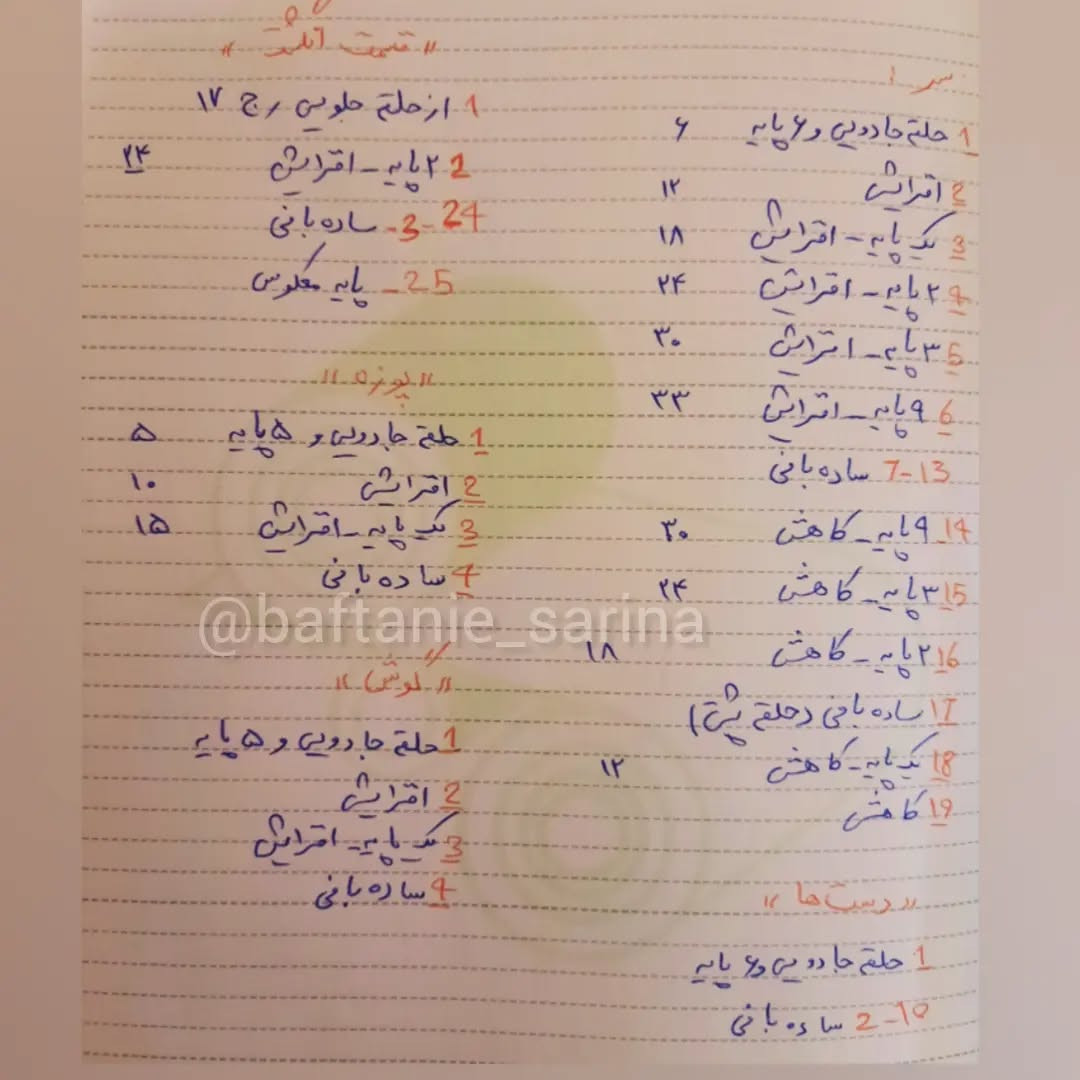 سر
1 حلقه جادویی و ۶ پایه ۶
2 افزایش ۱۲
3 یک پایه - افزایش ۱۸
4 ۲ پایه - افزایش ۲۴
5 ۳ پایه - افزایش ۳۰
6 ۹ پایه - افزایش ۳۳
7-13 ساده بافی
14 - ۹ پایه - کاهش ۳۰
15 ۳ پایه - کاهش ۲۴
16 ۲ پایه - کاهش ۱۸
17 ساده بافی (حلقه پشت)
18 یک پایه - کاهش ۱۲
19 کاهش
"دست ها"
1 حلقه جادویی و ۶ پایه
2-10 ساده بافی
"قسمت
1 از حلقه جلویی رج ۱۷
2 ۲ پایه - افزایش ۲۴
3-24- ساده بافی
25 - پایه معکوس
"پوزه"
1 حلقه جادویی و ۵ پایه ۵
2 افزایش ۱۰
3 یک پایه - افزایش ۱۵
4 ساده بافی
"گوش"
1 حلقه جادویی و ۵ پایه
2 افزایش
3 یک پایه - افزایش
4 ساده بافی
@baftanie_sarina